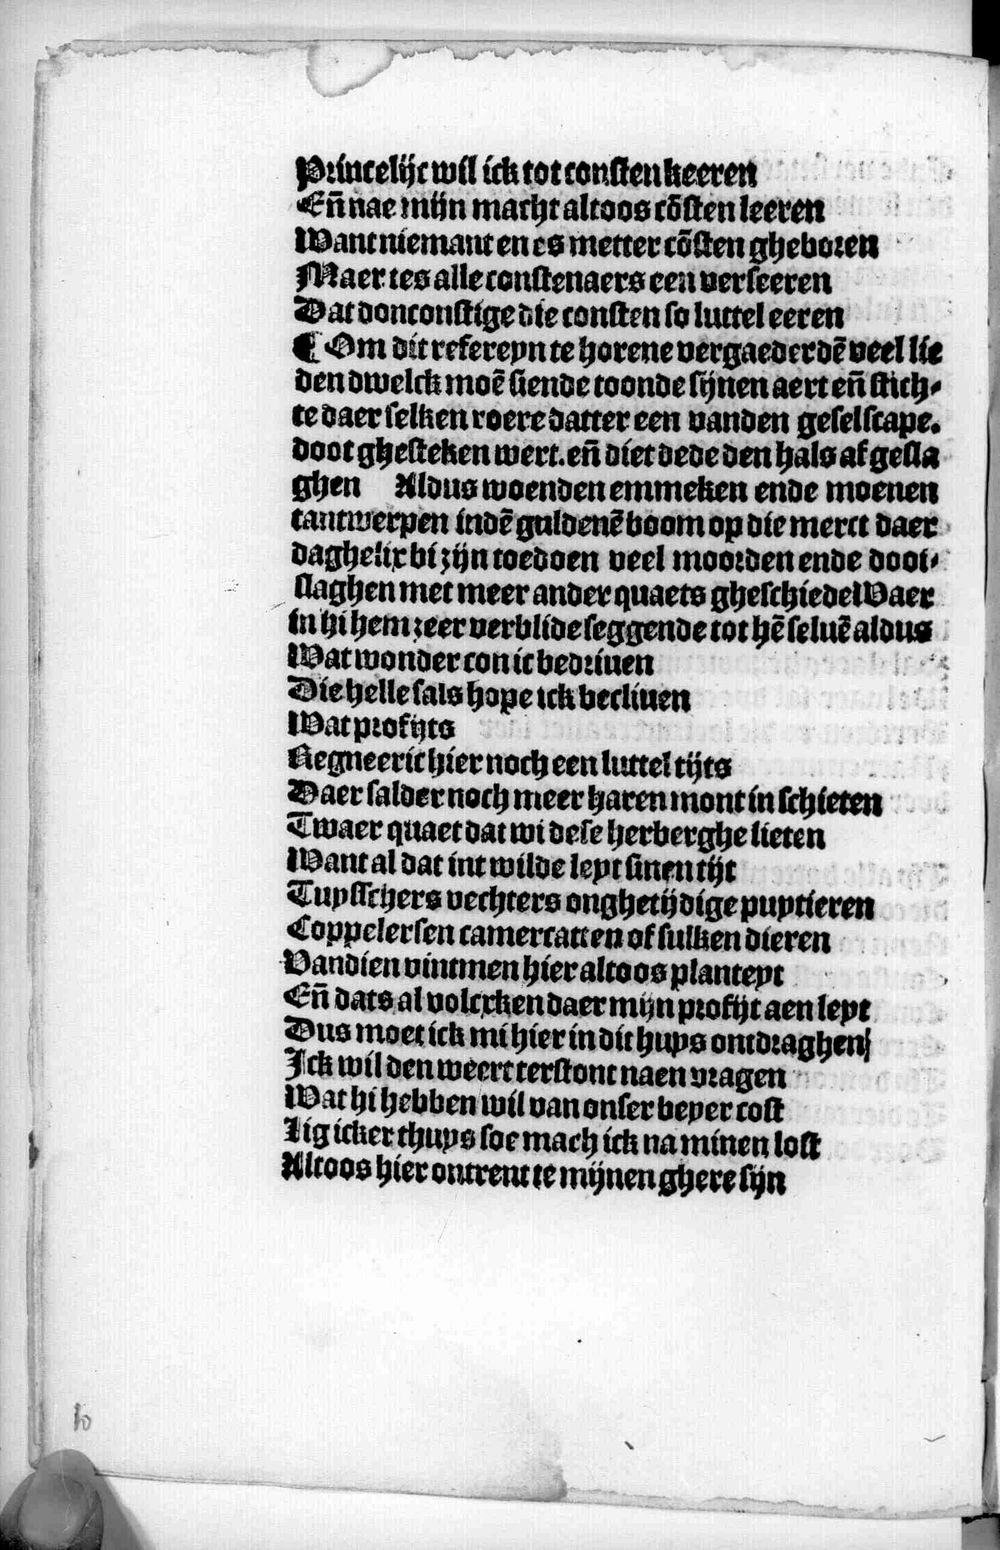 Princelijc wil ick tot consten keeren
Eñ nae mijn macht altoos cõsten leeren
Want niemant en es metter cõsten gheboren
Maer tes alle constenaers een verseeren
Dat donconstige die consten so luttel eeren
¶ Om dit refereyn te horene vergaederdẽ veel lie
den dwelck moẽ siende toonde sijnen aert eñ stich-
te daer selken roere datter een vanden geselscape.
doot ghesteken wert. eñ diet dede den hals af gesla
ghen Aldus woenden emmeken ende moenen
tantwerpen indẽ guldenẽ boom op die merct daer
daghelix bi zijn toedoen veel moorden ende doot-
slaghen met meer ander quaets gheschiede Waer
in hi hem zeer verblide seggende tot hẽ seluẽ aldus
Wat wonder con ic bedriuen
Die helle sals hope ick becliuen
Wat profijts
Regneeric hier noch een luttel tijts
Daer salder noch meer haren mont in schieten
Twaer quaet dat wi dese herberghe lieten
Want al dat int wilde leyt sinen tijt
Tuysschers vechters onghetijdige puytieren
Coppelersen camercatten of sulken dieren
Vandien vintmen hier altoos planteyt
Eñ dats al volcxken daer mijn profijt aen leyt
Dus moet ick mi hier in dit huys ontdraghen
Ick wil den weert terstont naen vragen
Wat hi hebben wil van onser beyer cost
Lig icker thuys soe mach ick na minen lost
Altoos hier ontrent te mijnen ghere sijn